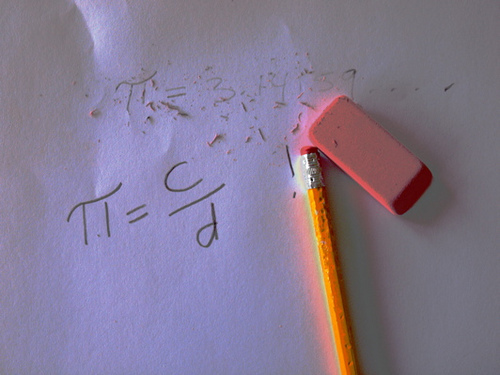 π = 3.14159.....
π = c/d